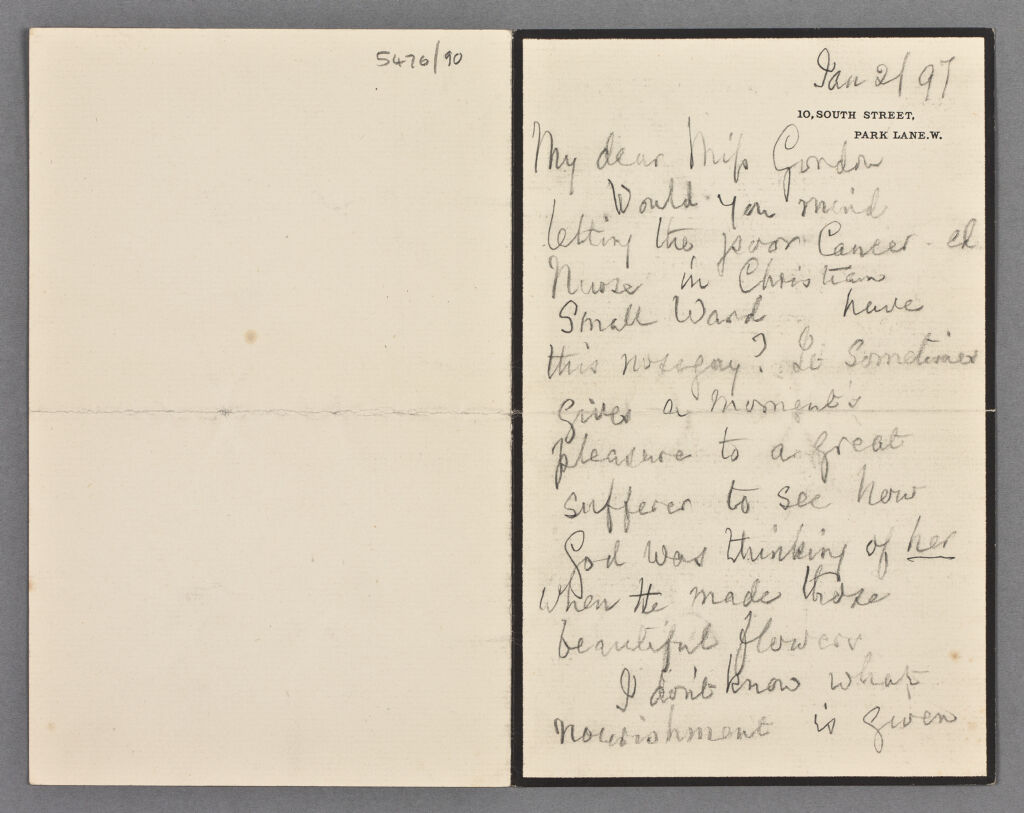 5476/90
Jan 2/97
10, SOUTH STREET,
PARK LANE. W.
My dear Miss Gordon
Would you mind
letting the poor Cancer-ed
Nurse in Christian
Small Ward have
this nosegay? It sometimes
gives a moment's
pleasure to a great
sufferer to see how
God was thinking of her
when He made those
beautiful flowers
I don't know what
nourishment is given